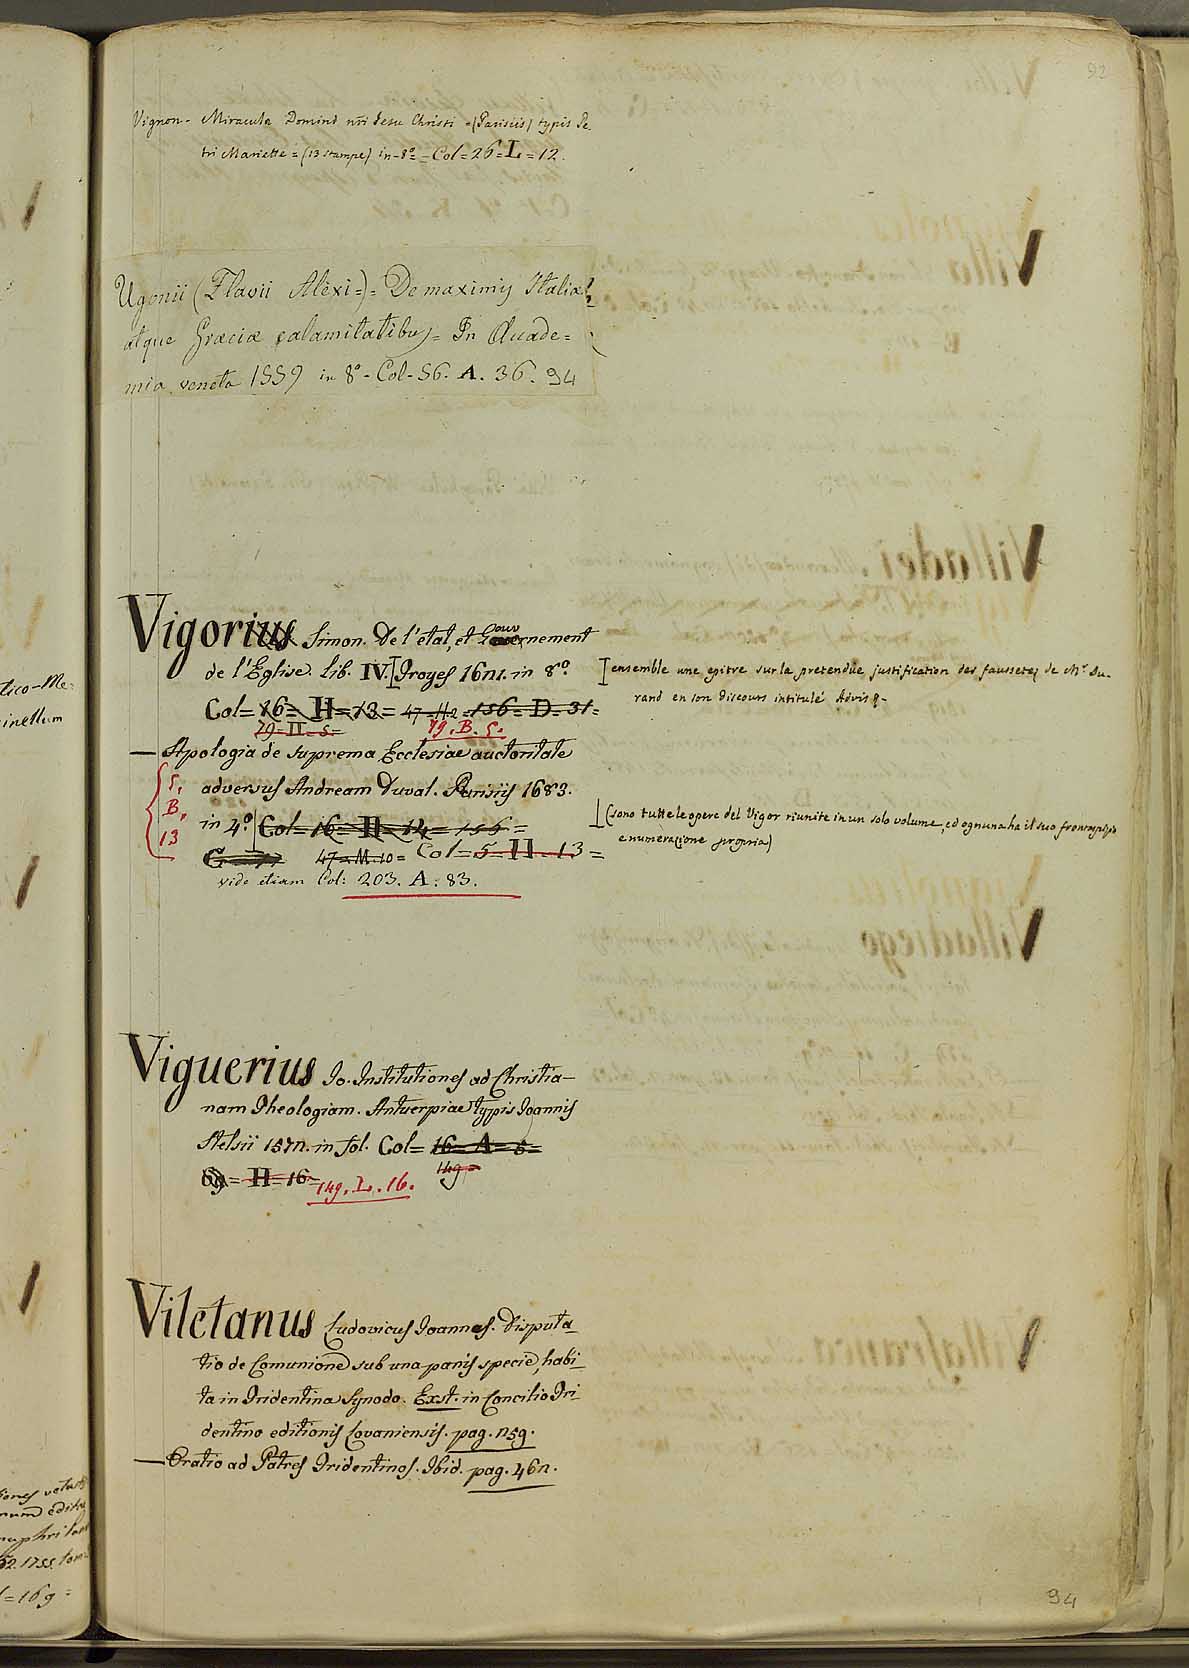 92
Vignon - Miracula Domini nri Jesu Christi = (Parisiis) typis Pe-
tri Mariette = (13 stampe) in-8º = Col = 26 = L = 12.
Ugonii (Flavii Alexi =) = De maximis Italiae
atque Græciæ calamitatibus = In Acade=
mia veneta 1559 in 8º - Col - 56. A. 36. 94
Vigorius Simon. De l'etat, et Gouvernement
de l'Eglise. lib. IV. [Troyes 1621. in 8º.
[ensemble une epitre sur la pretendüe justification des faussetes de Mr. Du-
rand en son discours intitulé Advis &-
Col = 16 = H = 13 = 47 - H 2 = 156 = D = 31 =
79 - H - 5 = 79. B. 5.
— Apologia de suprema Ecclesiae auctoritate
adversus Andream Duval. Parisiis 1683.
5,
B,
13
in 4º Col = 16 = H = 14 = 156 =
[(sono tutte le opere del Vigor riunite in un solo volume, ed ognuna ha il suo frontispizio
e numerazione propria)
47 = M. 10 = Col = 5 = H = 13 =
vide etiam Col: 203. A: 83.
Viguerius Io. Institutiones ad Christia-
nam Theologiam. Antuerpiae typis Joannis
Stelsii 1572. in fol. Col = 16 = A = 5 =
69 = H = 16 = 149. L. 16. 149 =
Viletanus Ludovicus Joannes. Disputa-
tio de Comunione sub una panis specie, habi-
ta in Tridentina Synodo. Exst. in Concilio Tri-
dentino editionis Lovaniensis. pag. 259.
— Oratio ad Patres Tridentinos. Ibid. pag. 462.
94